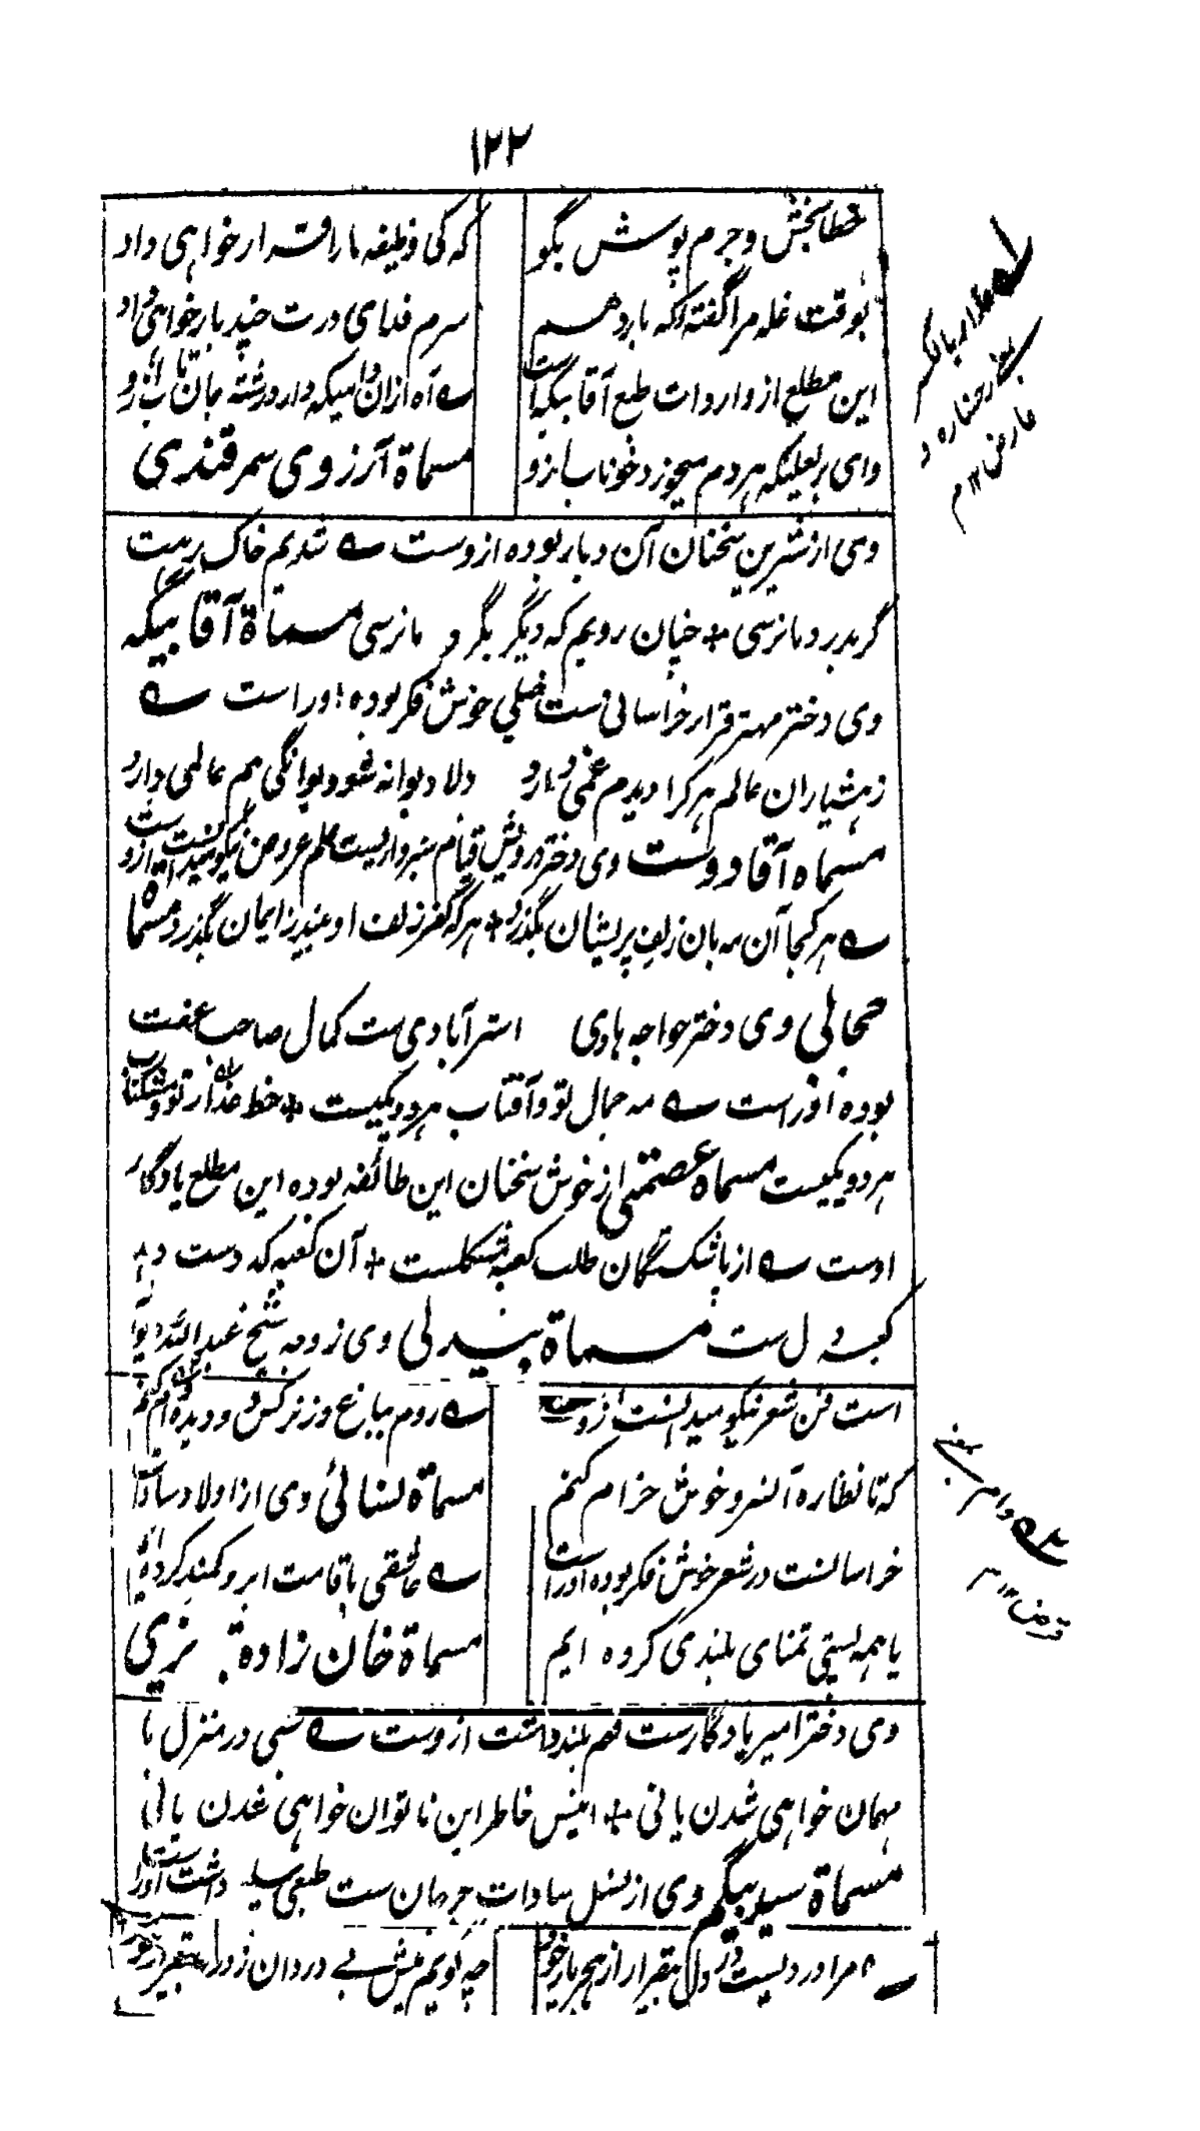 ۱۲۲
خطابخش و جرم پوش بگو که کی وظیفه ما را قرار خواهی داد
بوقت غله مرا گفته که بار دهم سرم فدای درت چند بار خواهی داد
این مطلع از واردات طبع آقا بیگه است ؎ آه ازان دامیکه دارد رشته جان تاب ازو
وای بر لعلیکه هر دم میخورد خوناب ازو مسماة آرزوی سمرقندی
وی از شیرین سخنان آن دیار بوده ازوست ؎ شدیم خاک رهت
گر بدرد ما نرسی + چنان رویم که دیگر بگرد ما نرسی مسماة آقا بیگه
وی دختر مهتر قرار خراسانی ست خیلی خوش فکر بوده اوراست ؎
زهشیاران عالم هر کرا دیدم غمی دارد دلا دیوانه شو دیوانگی هم عالمی دارد
مسماه آقا دوست وی دختر درویش قیام سبزواریست علم عروض نیکو میدانست ازوست
؎ هر کجا آن مه بان زلف پریشان بگذرد + هر که کفر زلف او بیند ز ایمان بگذرد مسماة
حجابی وی دختر خواجه هادی استرآبادی ست کمال صاحب عفت
بوده اوراست ؎ مه جمال تو و آفتاب هر دو یکیست + خط عذار تو و مشکناب
هر دو یکیست مسماه عصمتی از خوش سخنان این طائفه بوده این مطلع یادگار
اوست ؎ از ما شکستگان طلب کعبه مشکلست + آن کعبه که دست دهد
کعبه دل ست مسماة بیدلی وی زوجه شیخ عبدالله دیوانه
است فن شعر نیکو میدانست ازوست ؎ روم بباغ و ز نرگس دو دیده وام کنم
که تا نظاره آن سرو خوش خرام کنم مسماة نسائی وی از اولاد سادات
خراسانست در شعر خوش فکر بوده اوراست ؎ عاشقی با قامت ابرو کمند کرده ایم
با همه پستی تمنای بلندی کرده ایم مسماة خان زاده تبریزی
وی دختر امیر یادگارست فهم بلند داشت ازوست ؎ شبی در منزل ما
مهمان خواهی شدن یا نی + انیس خاطر این ناتوان خواهی شدن یا نی
مسماة سید بیگم وی از نسل سادات جرجان ست طبعی داشت اوراست
؎ مرا دردیست در دل بیقرار از هجر یار خود چه گویم پیش بی دردان ز درد بیقرار خود